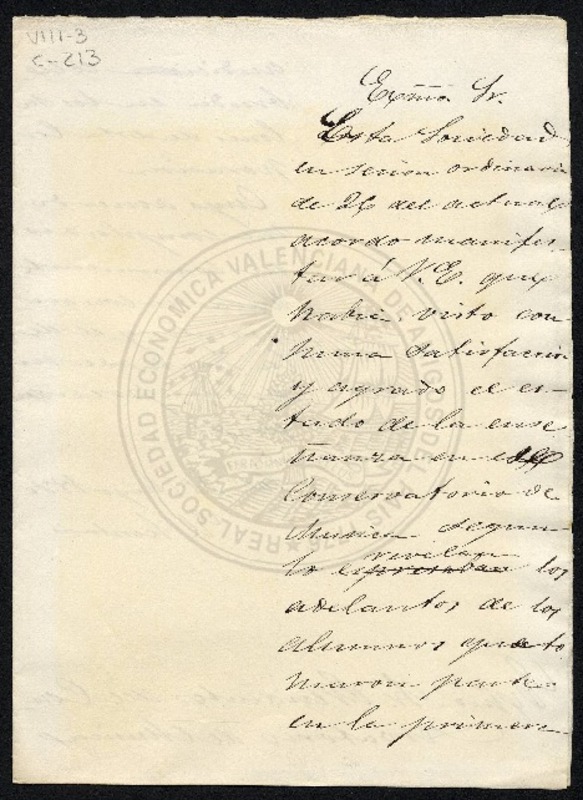 VIII-3
C-213
Exmo Sr.
Esta Sociedad
en sesion ordinaria
de 26 del actual
acordo manifes-
tar á V. E. que
habia visto con
suma satisfaccion
y agrado el es-
tado de la ense
ñanza en el
Conservatorio de
Musica segun
revelan
lo los
adelantos de los
alumnos que to
maron parte
en la primera
REAL SOCIEDAD ECONOMICA VALENCIANA DE AMIGOS DEL PAIS 1776